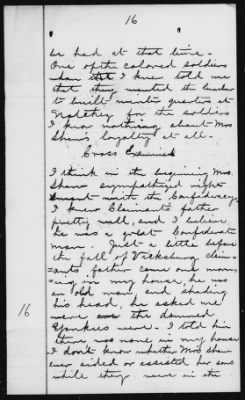 16
be had at that time.
One of the colored soldiers
whom I knew told me
that they wanted the lumber
to built winter quarters at
Natchez for the soldiers
I know nothing about Mrs
Shaw's loyalty at all.
Cross Examined
I think in the beginning Mrs.
Shaw sympathized right
smart with the Confederacy
I knew Claimant's father
pretty well, and I believe
he was a great Confederate
man. Just a little before
the fall of Vicksburg claim=
=ants father came one morn=
=ing in my house, he was
an old man and shaking
his head, he asked me
were the damned
Yankees were. I told him
there was none in my house
I don't know whether Mrs Shaw
ever aided or assisted her sons
while they were in the
16